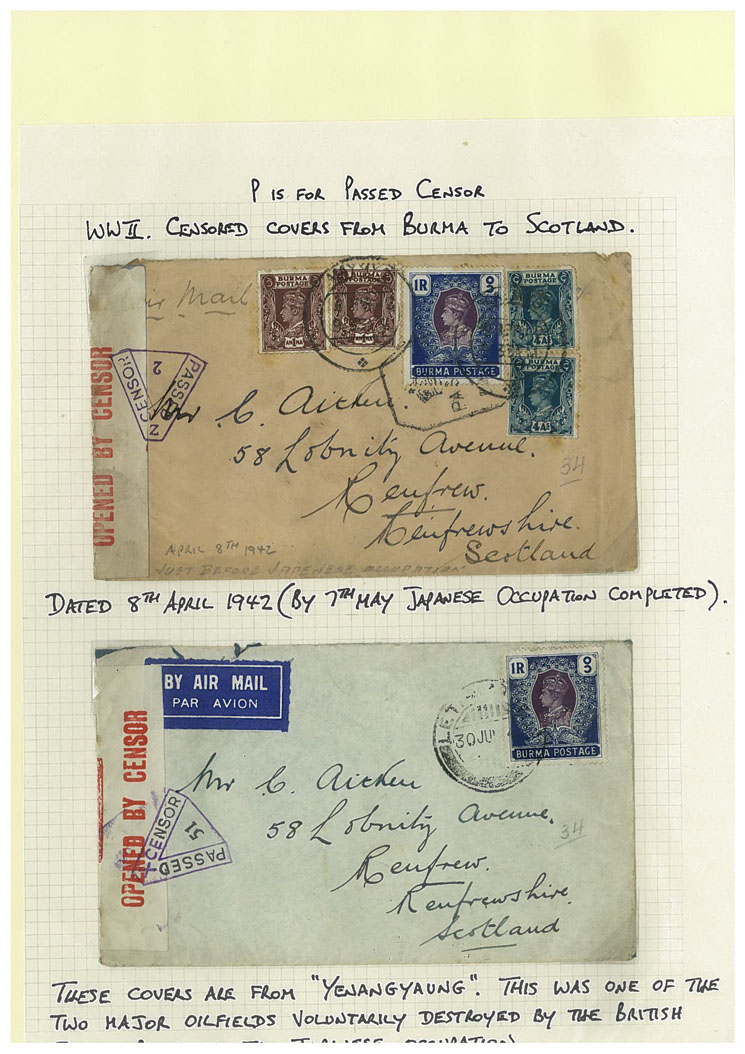 P is for Passed Censor
WWII. Censored covers from Burma to Scotland.
Air Mail
BURMA POSTAGE
ANNA
BURMA POSTAGE
ANNA
1R
BURMA POSTAGE
BURMA POSTAGE
4As
4As
OPENED BY CENSOR
PASSED
CENSOR
2
Z
PA
Mr C. Aitken.
58 Lobnitz Avenue.
Renfrew.
Renfrewshire.
Scotland
34
APRIL 8TH 1942
JUST BEFORE JAPENESE OCCUPATION
Dated 8th April 1942 (By 7th May Japanese Occupation Completed).
BY AIR MAIL
PAR AVION
1R
BURMA POSTAGE
LET
30 JU
OPENED BY CENSOR
PASSED
CENSOR
51
Mr C. Aitken
58 Lobnitz Avenue.
34
Renfrew.
Renfrewshire.
Scotland
These covers are from "Yenangyaung". This was one of the
two major oilfields voluntarily destroyed by the British